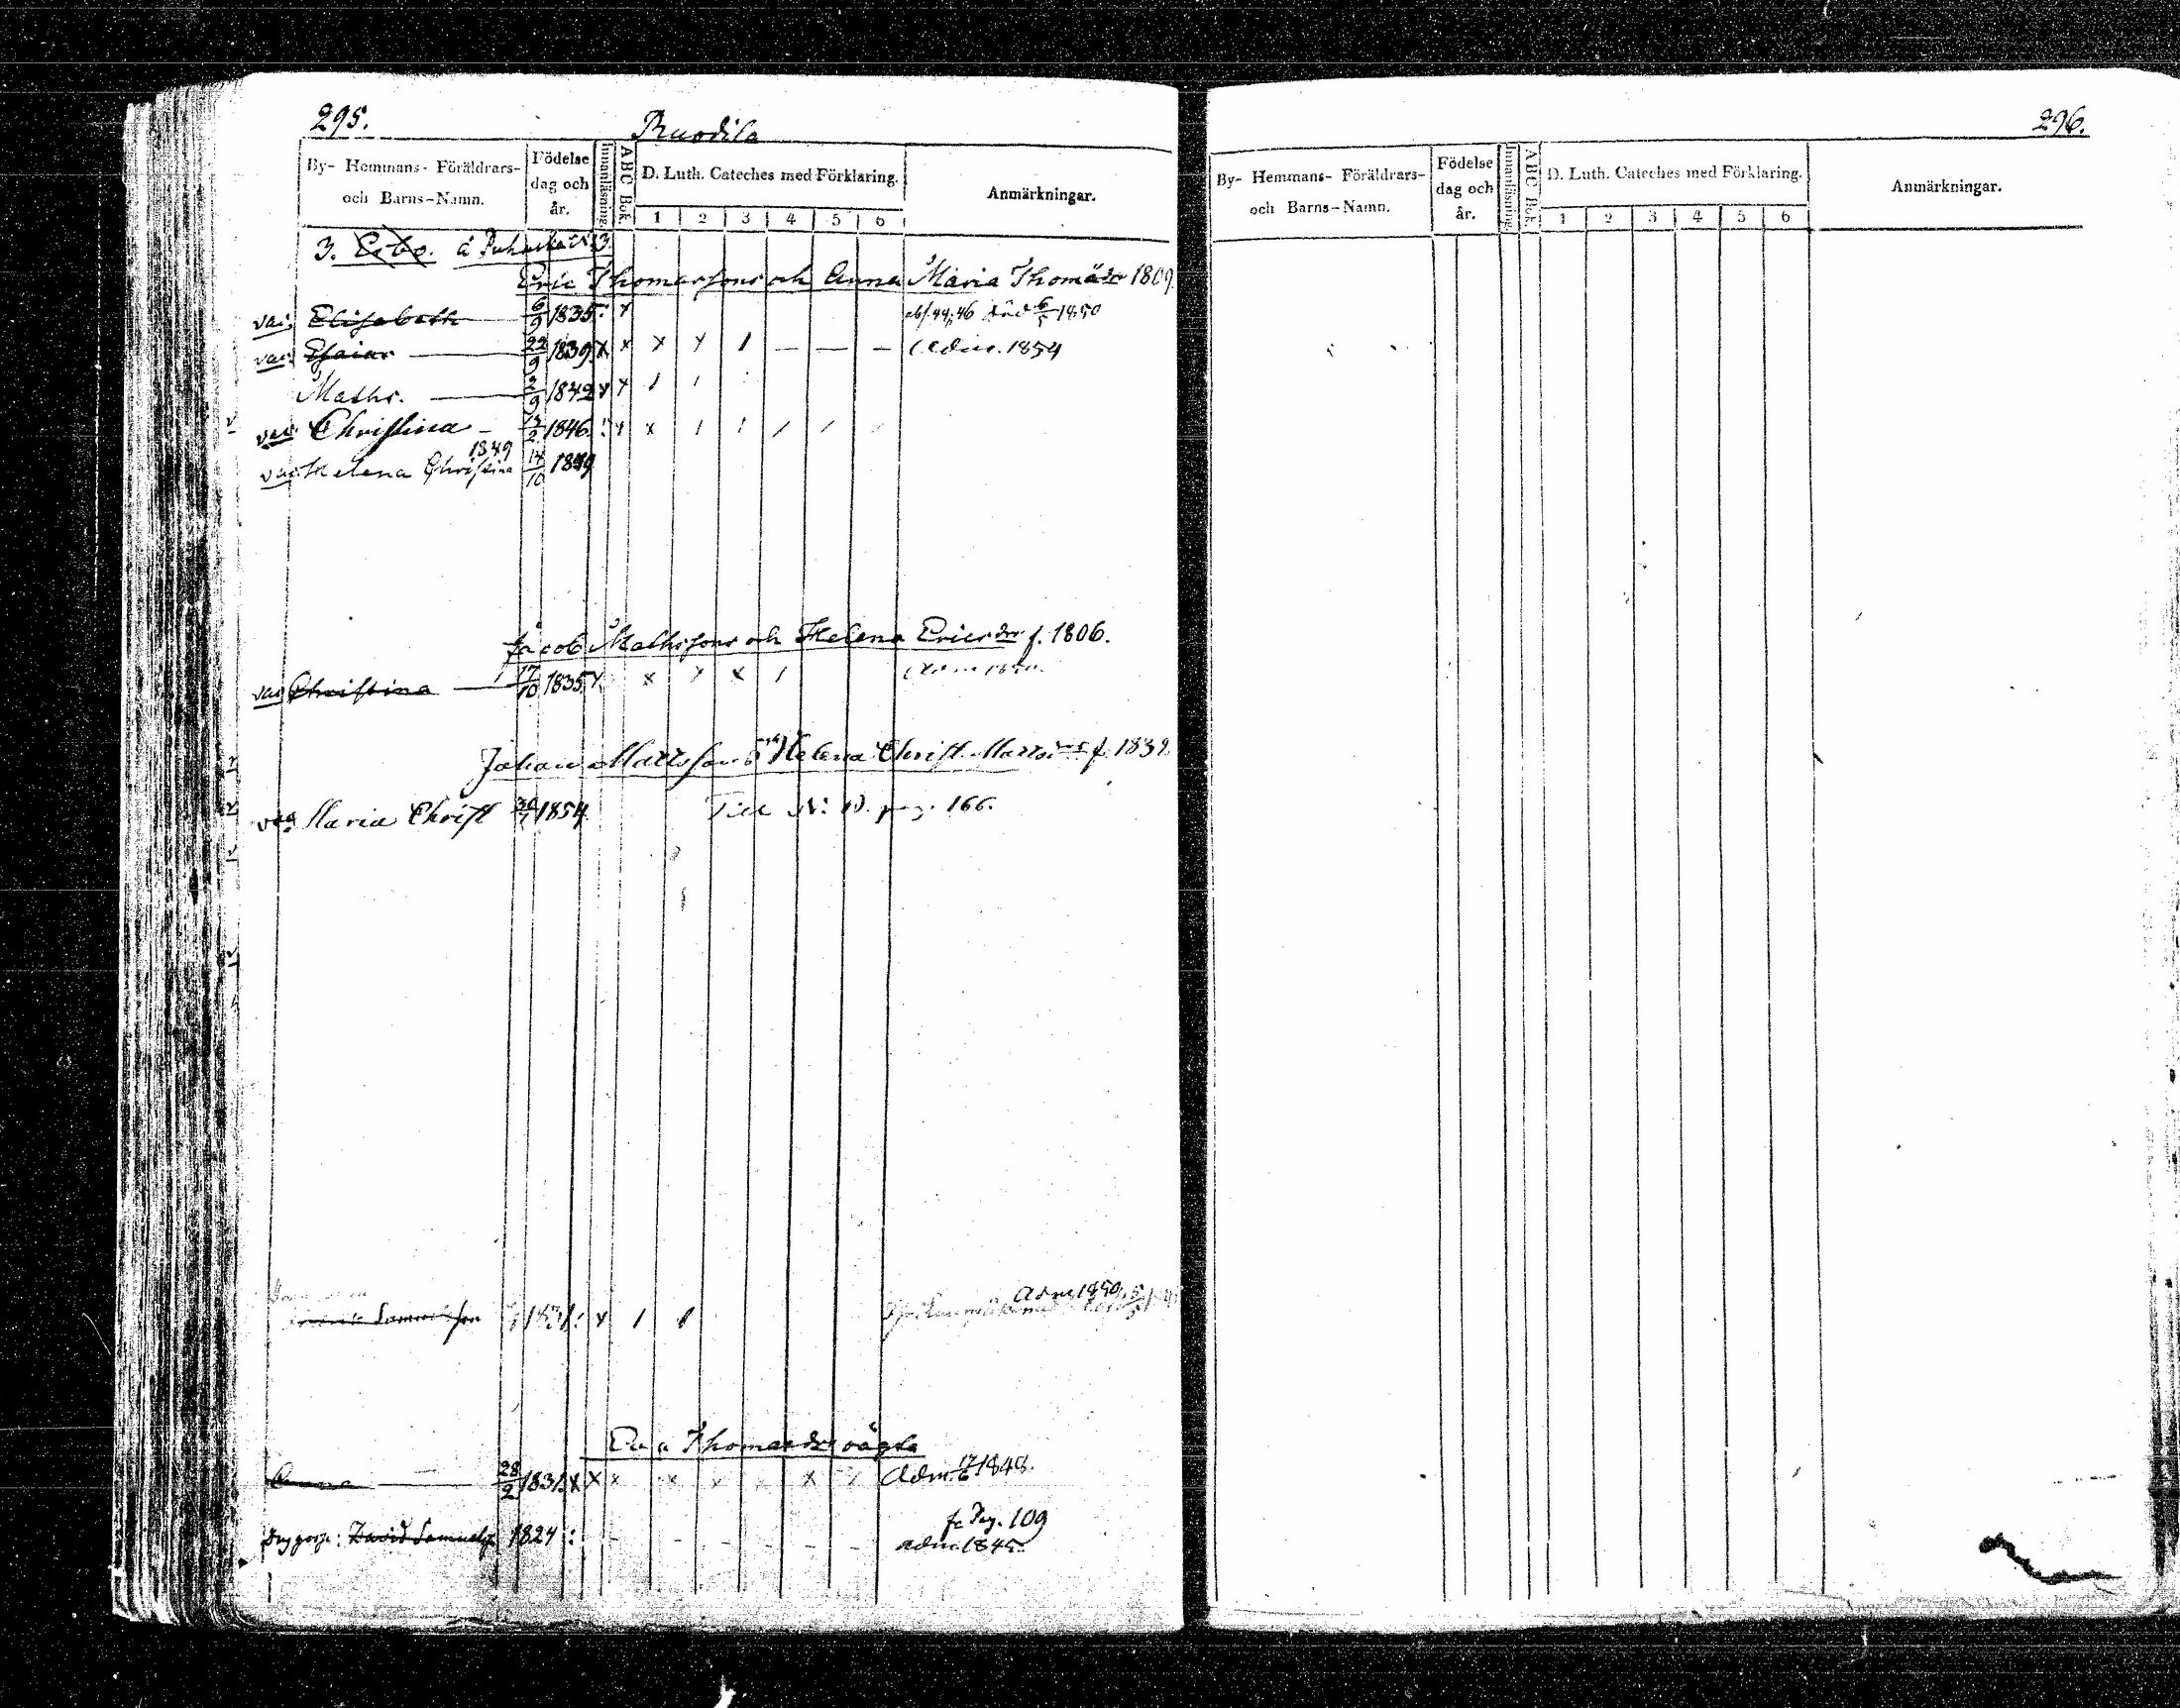 295.
Ruodila
By- Hemmans- Föräldrars-
och Barns-Namn.
Födelse
dag och
år.
Innanläsning.
ABC Bok.
D. Luth. Cateches med Förklaring.
1 2 3 4 5 6
Anmärkningar.
3. Erbo. å No 3.
Eric Thomassons och Anna Maria Thomædr 1809.
vac: Elisabeth 6/9 1835 : x död 6/5 1850
vac: Esaias — 22/9 1839. x x x x / — — — Adm. 1854
Maths. — 2/9 1842 x x / /
vac Christina - 12/2 1846. : x x / / / / /
1849
vac: Helena Christina 14/10 1849
Jacob Mathssons och Helena Ericsdr f. 1806.
vac Christina — 17/10 1835 x x x x / Adm 1850.
Johan Mattsson o Helena Christ. f. 1832
vac Maria Christ 30/ 1854 Till N: 10. pag. 166.
Samuelsson 1831 : x / / Adm 1850.
Eva Thomasdr oägta
Anna — 28/2 1831. x x x x x x x / Adm. 17/6 1848.
fr Pag. 109
Drg gosse: David Samuelss. 1824 : - - - - - - adm. 1845.
296.
By- Hemmans- Föräldrars-
och Barns-Namn.
Födelse
dag och
år.
Innanläsning.
ABC Bok.
D. Luth. Cateches med Förklaring.
1 2 3 4 5 6
Anmärkningar.